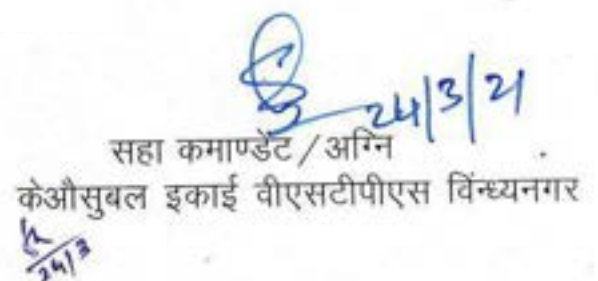 24/3/21
सहा कमाण्डेंट/अग्नि
केऔसुबल इकाई वीएसटीपीएस विंन्ध्यनगर
24/3